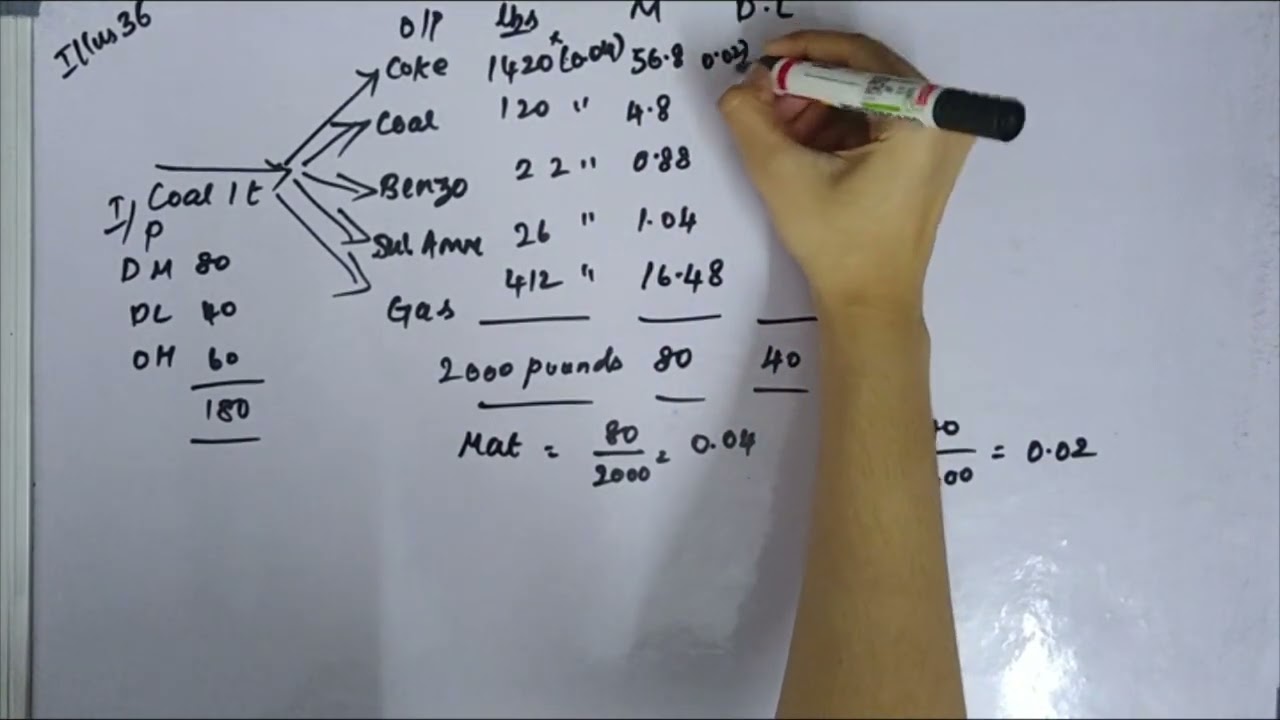 Illus 36
O/P lbs M D.L
Coke 1420 x (0.04) 56.8 0.02
Coal 120 " 4.8
Benzo 22 " 0.88
26 " 1.04
Gas 412 " 16.48
2000 pounds 80 40
I/P Coal 1t
DM 80
DL 40
OH 60
180
Mat = 80/2000 = 0.04
= 0.02